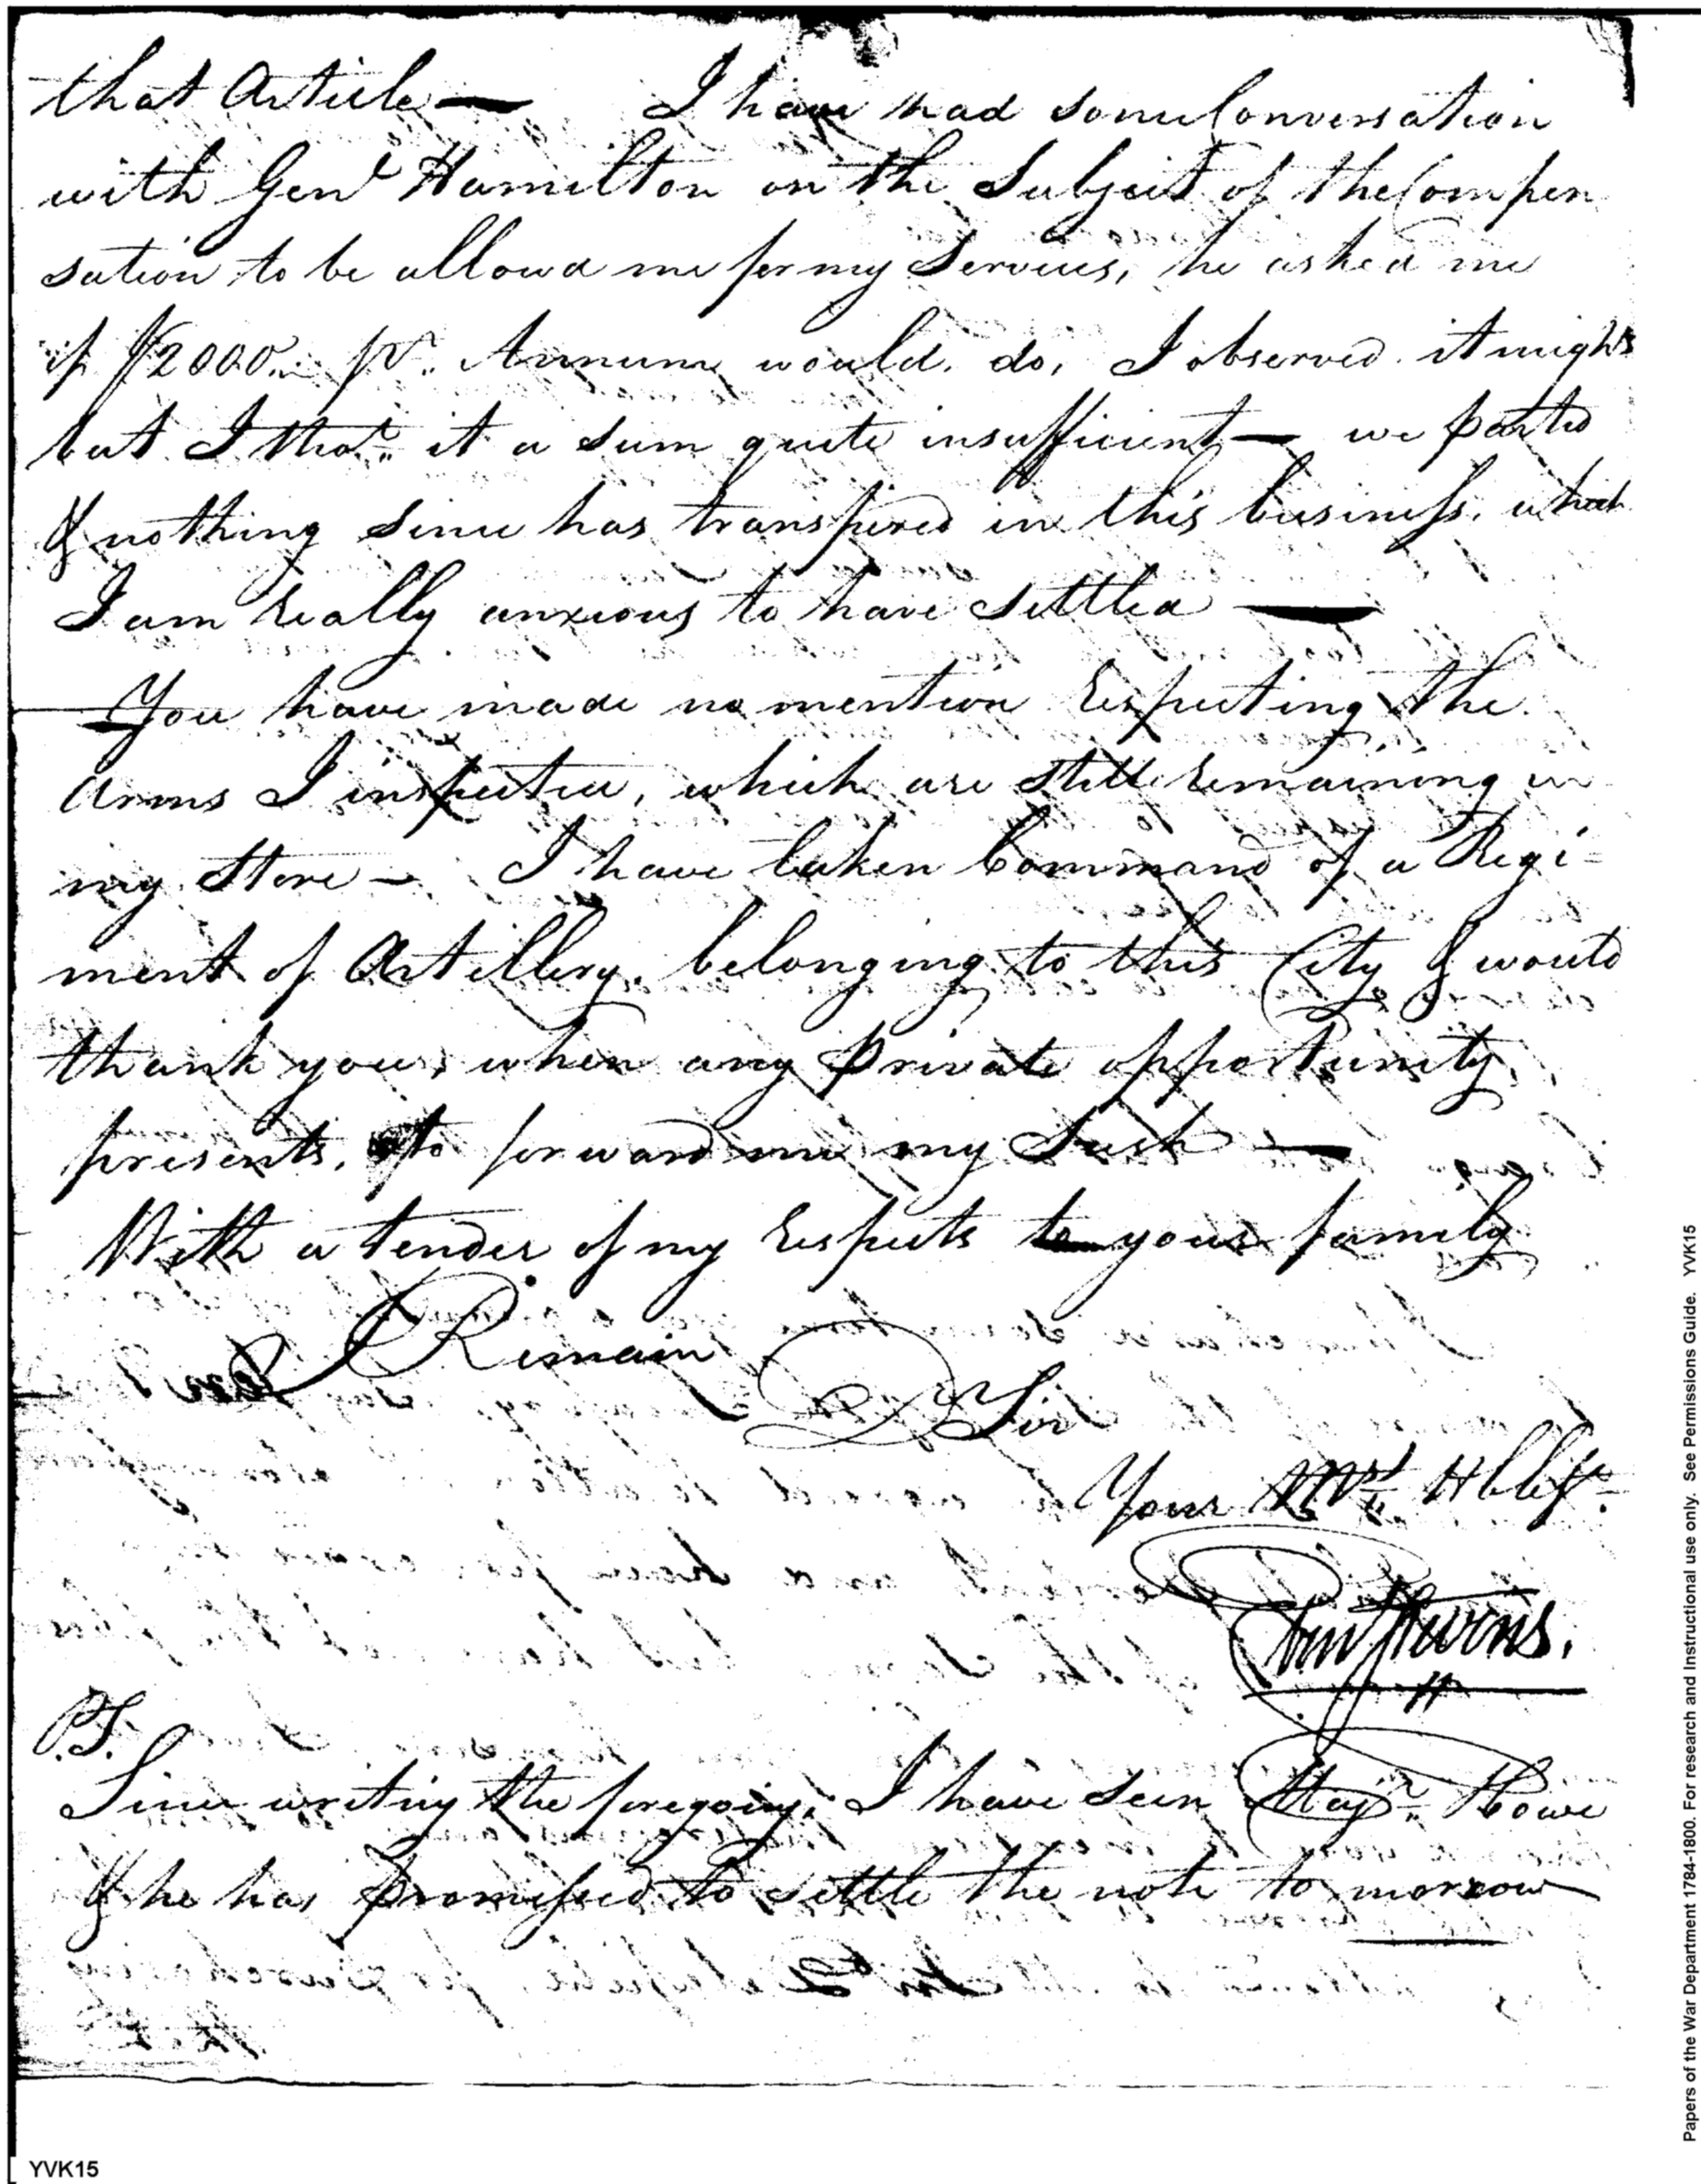 that Article — I have had some Conversation
with Genl Hamilton on the Subject of the Compen
sation to be allowd me for my Services, he asked me
if $2000.. pr. Annum would do, I observed it might
but I thot. it a sum quite insufficient — we parted
& nothing since has transpired in this business, which
I am really anxious to have settled —
You have made no mention respecting the
Arms I inspected, which are still remaining in
my Store — I have taken Command of a Regi-
ment of Artillery belonging to this City & would
thank you, when any private opportunity
presents, to forward me my Sash —
With a tender of my respects to your family
I Remain
Sir
Your Mst Hble Sr.
Eben Stevens.
P.S.
Since writing the foregoing, I have seen Majr. Howe
& he has promised to settle the note to morrow
Papers of the War Department 1784-1800. For research and Instructional use only. See Permissions Guide. YVK15
YVK15